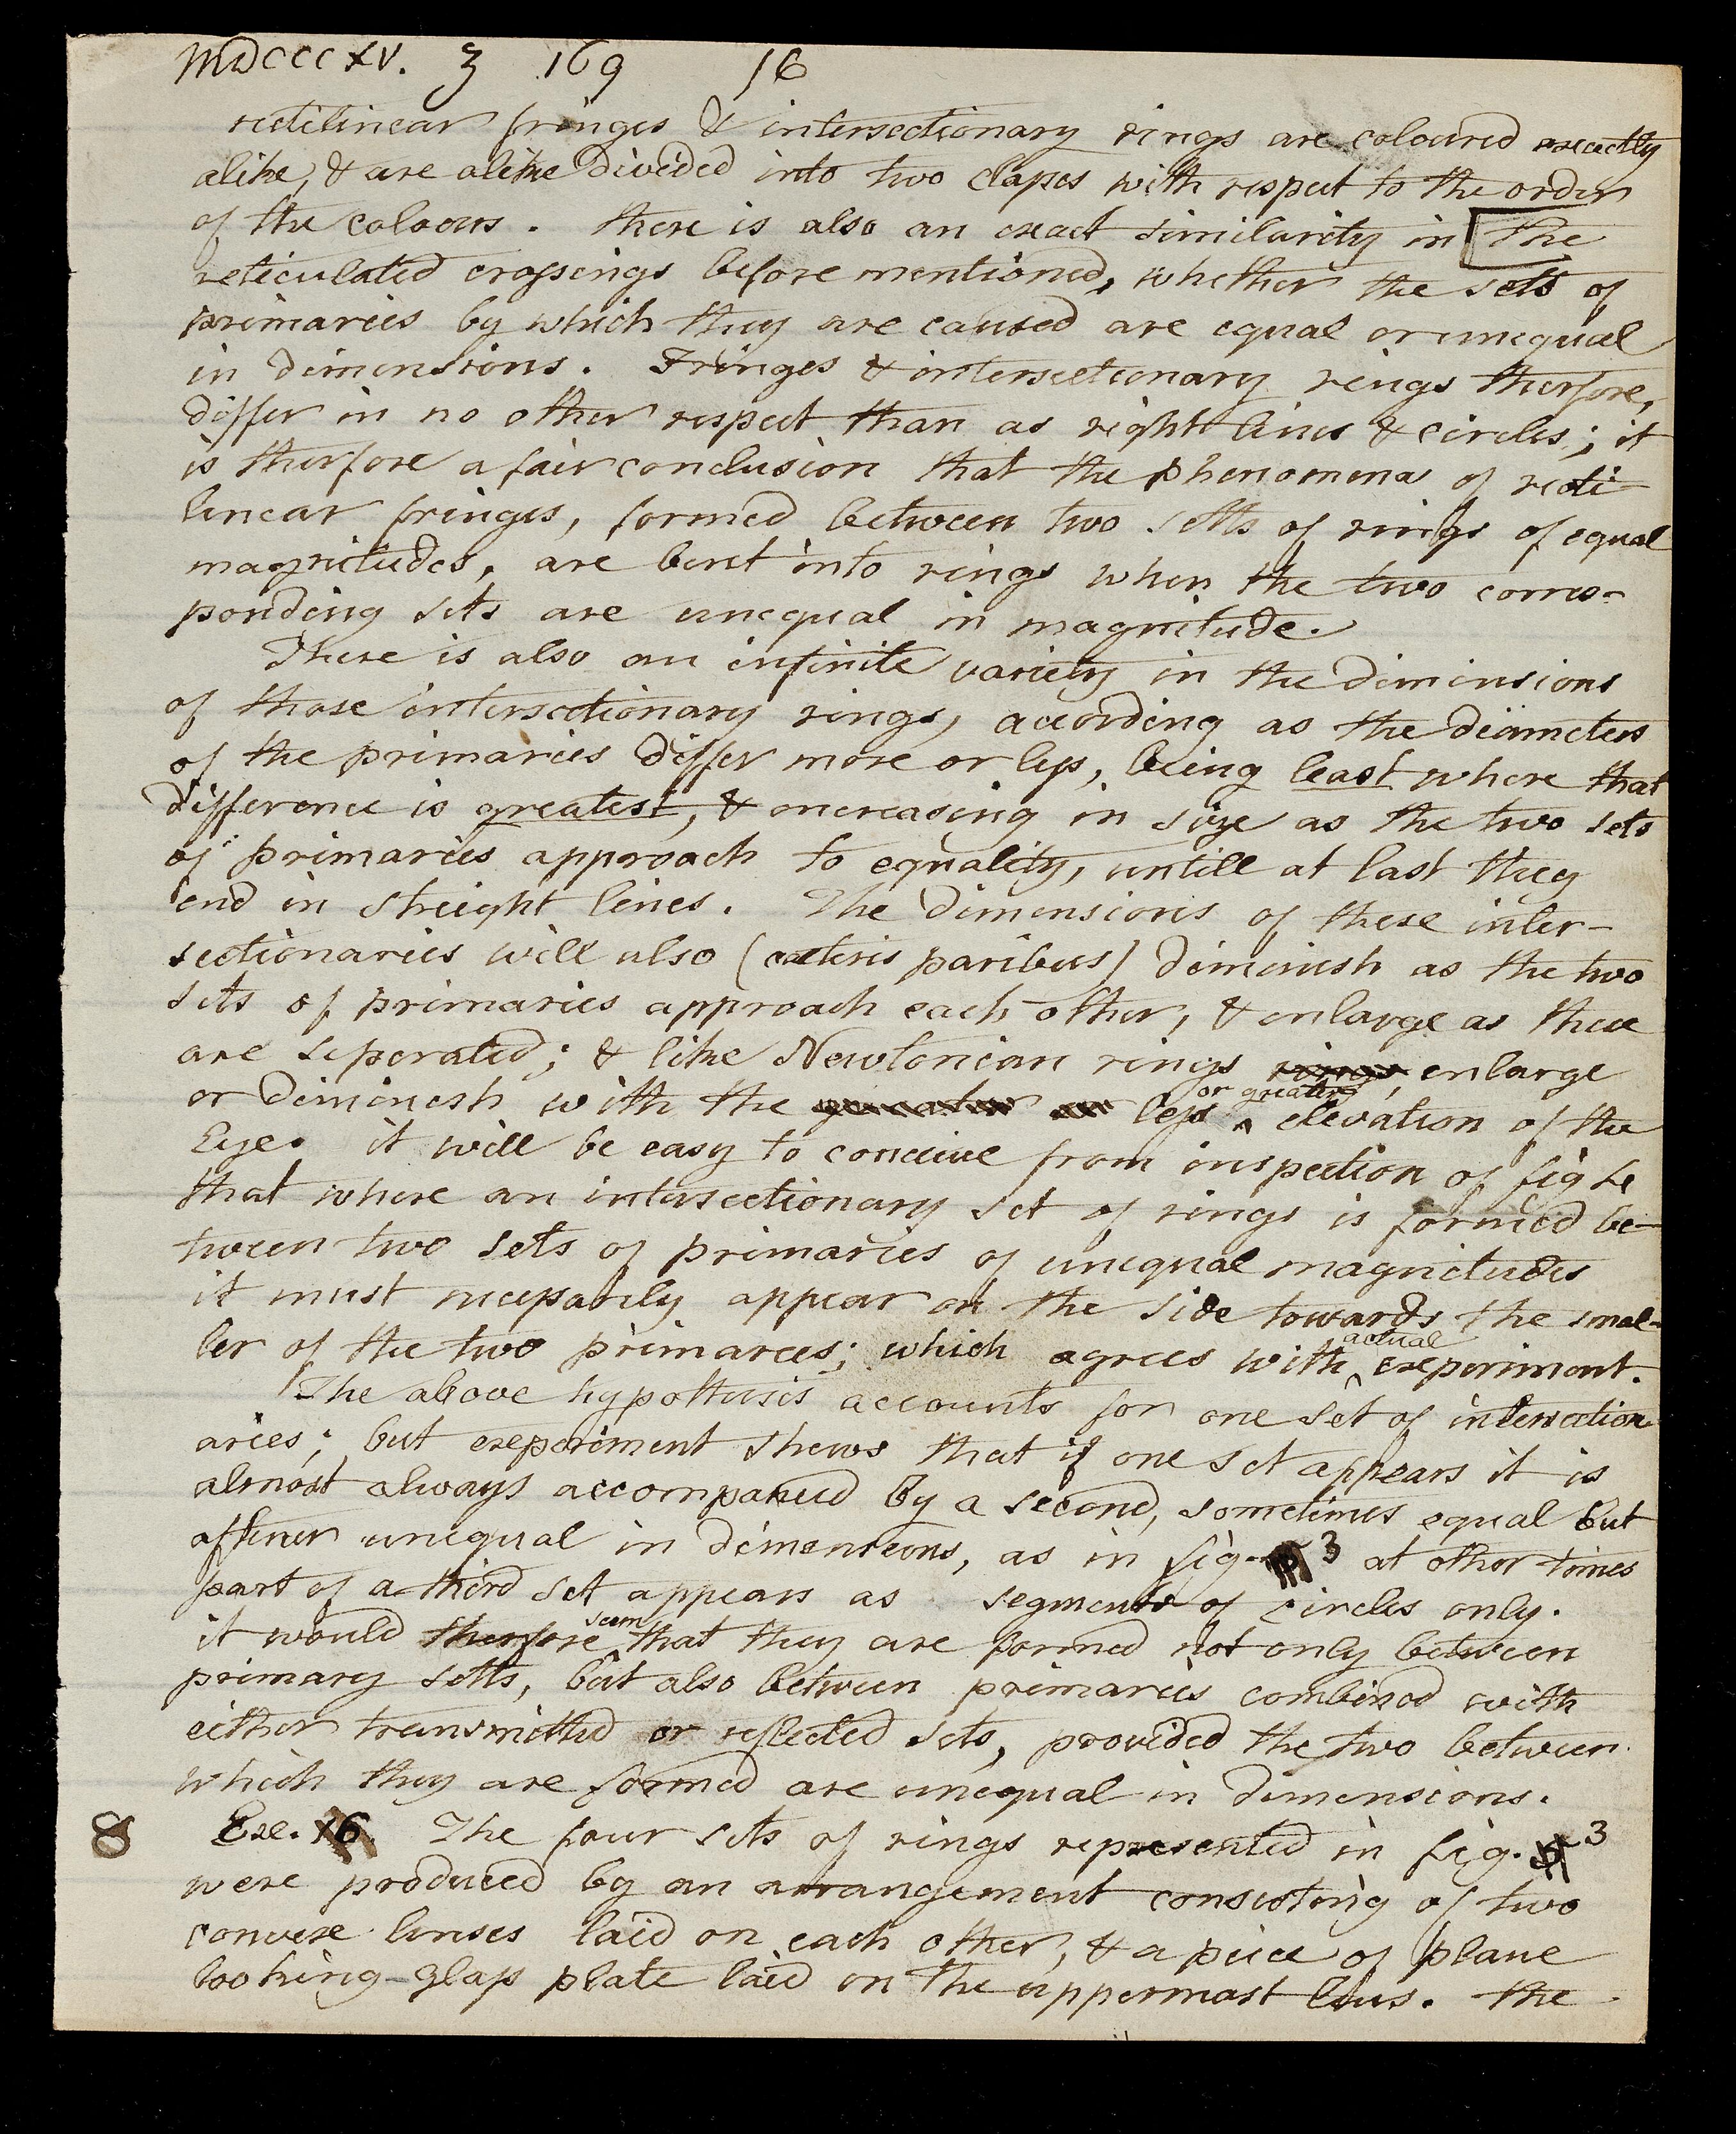 MDCCCXV. Z 169 16
rectilinear fringes & intersectionary rings are coloured exactly
alike, & are alike divided into two classes with respect to the order
of the colours. there is also an exact similarity in the
reticulated crossings before mentioned, whether the sets of
primaries by which they are caused are equal or unequal
in dimensions. Fringes & intersectionary rings therfore,
differ in no other respect than as right lines & circles; it
is therfore a fair conclusion that the phenomena of recti-
linear fringes, formed between two setts of rings of equal
magnitudes, are bent into rings when the two corres-
ponding sets are unequal in magnitude.
There is also an infinite variety in the dimensions
of those intersectionary rings, according as the diameters
of the primaries differ more or less, being least where that
difference is greatest, & increasing in size as the two sets
of primaries approach to equality, untill at last they
end in streight lines. The dimensions of these inter-
sectionaries will also (cæteris paribus) diminish as the two
sets of primaries approach each other, & enlarge as these
are seperated; & like Newtonian rings rings, enlarge
or diminish with the greater or less or greater elevation of the
Eye. it will be easy to conceive from inspection of fig
that where an intersectionary set of rings is formed be-
tween two sets of primaries of unequal magnitudes
it must necessarily appear on the side towards the smal-
ler of the two primaries; which agrees with actual experiment.
The above hypothesis accounts for one set of intersection-
aries; but experiment shews that if one set appears it is
almost always accompanied by a second, sometimes equal but
oftener unequal in dimensions, as in fig. 3 at other times
part of a third set appears as segments of circles only.
it would therfore seem that they are formed not only between
primary setts, but also between primaries combined with
either transmitted or reflected sets, provided the two between
which they are formed are unequal in dimensions.
8 Exe. 16. The four sets of rings represented in fig. 3
were produced by an arrangement consisting of two
convexe lenses laid on each other, & a piece of plane
looking-glass plate laid on the uppermost lens. the